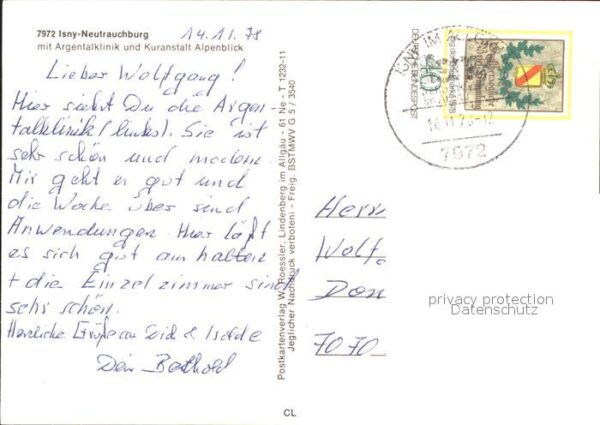 7972 Isny-Neutrauchburg
mit Argentalklinik und Kuranstalt Alpenblick
14.11.78
Lieber Wolfgang!
Hier siehst Du die Argen-
talklinik (links). Sie ist
sehr schön und modern.
Mir geht es gut und
die Woche über sind
Anwendungen. Hier läßt
es sich gut aushalten
+ die Einzelzimmer sind
sehr schön.
Herzliche Grüße an &
Dein Berthold
Postkartenverlag W. Roessler, Lindenberg im Allgäu - 61 Ne - T 1232-11
Jeglicher Nachdruck verboten! - Freig. BSTMWV G 5 / 3540
CL
DEUTSCHE BUNDESPOST
40
ISNY IM ALLGÄU
14.11.78-12
7972
Herrn
Wolfg
Don
7070
privacy protection
Datenschutz